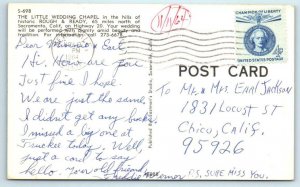 S-698
THE LITTLE WEDDING CHAPEL, in the hills of
historic ROUGH & READY, 65 miles north of
Sacramento, Calif. on Highway 20. Your wedding
will be performed with dignity amid beauty and
tradition. For information call 273-6678
11/1/64
CHAMPION OF LIBERTY
UNITED STATES POSTAGE
POST CARD
Dear Minnie & Earl,
Hi, How are you?
Just fine I hope.
We are just the same.
I didn't get any bucks.
I missed a big one at
Truckee today. Well,
just a card to say
hello. Your old friend,
Mr. & Mrs Earl Jackson
1831 Locust St
Chico, Calif.
95926
P.S. SURE MISS YOU.